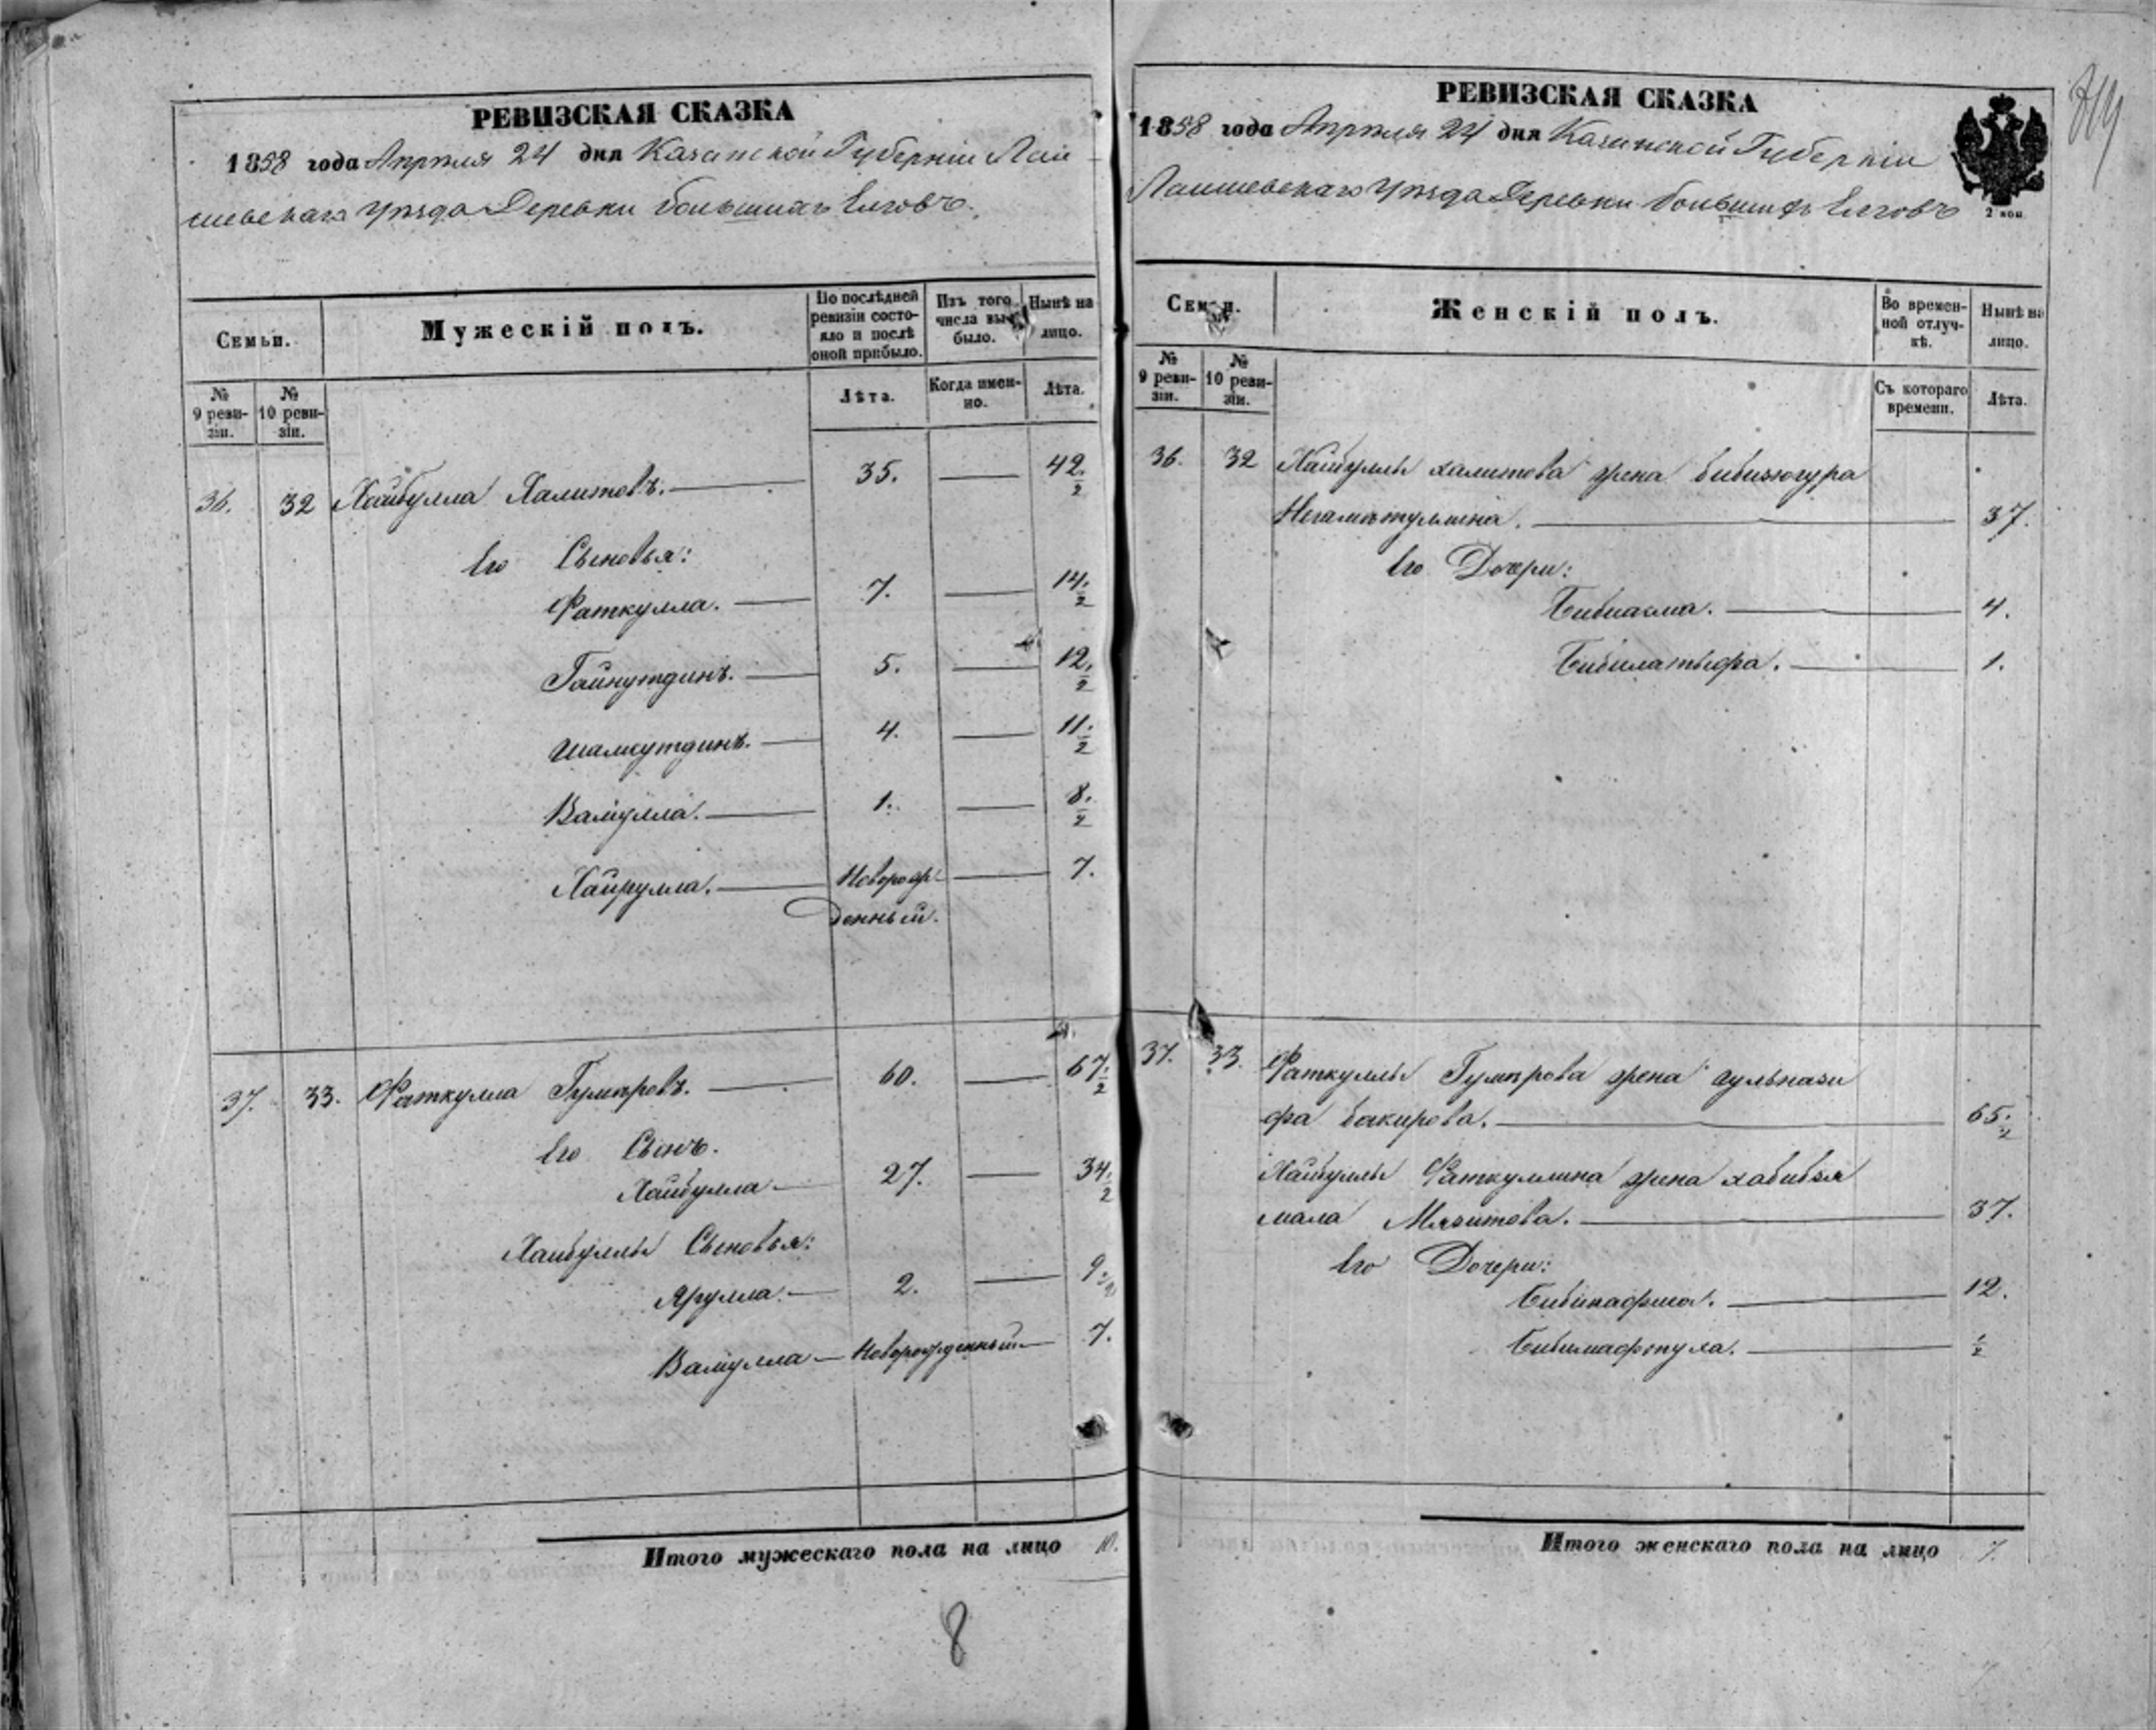 РЕВИЗСКАЯ СКАЗКА
1858 года Апрѣля 24 дня Казанской Губерніи Лаи
шевскаго Уѣзда Деревни большихъ Елговъ.
Семьи.
Мужескій полъ.
По послѣдней ревизіи состояло и послѣ оной прибыло.
Изъ того числа выбыло.
Нынѣ на лицо.
№ 9 ревизіи.
№ 10 ревизіи.
Лѣта.
Когда именно.
Лѣта.
36. 32 Хайбулла Халитовъ. 35. 42 1/2
Его Сыновья:
Фаткулла. 7. 14 1/2
Гайнутдинъ. 5. 12 1/2
Шамсутдинъ. 4. 11 1/2
Валіулла. 1. 8 1/2
Хайрулла. Новорож 7.
денный.
37. 33. Фаткулла Гумѣровъ. 60. 67 1/2
Его Сынъ.
Хайбулла 27. 34 1/2
Хайбуллы Сыновья:
Ярулла. 2. 9 1/2
Валіулла Новорожденный 7.
Итого мужескаго пола на лицо 10.
8
РЕВИЗСКАЯ СКАЗКА
1858 года Апрѣля 24 дня Казанской Губерніи
Лаишевскаго Уѣзда Деревни большихъ Елговъ
2 коп.
Семьи.
Женскій полъ.
Во временной отлучкѣ.
Нынѣ на лицо.
№ 9 ревизіи.
№ 10 ревизіи.
Съ котораго времени.
Лѣта.
36. 32 Хайбуллы халитова жена бибизюгура
Негаматуллина. 37.
Его Дочери:
Бибиасма. 4.
Бибилатыфа. 1.
37. 33. Фаткуллы Гумѣрова жена гульнази
фа бакирова. 65 1/2
Хайбуллы Фаткуллина жена хабибзя
мала Мязитова. 37.
Его Дочери:
Бибинафиса. 12.
1/2
Итого женскаго пола на лицо 7.